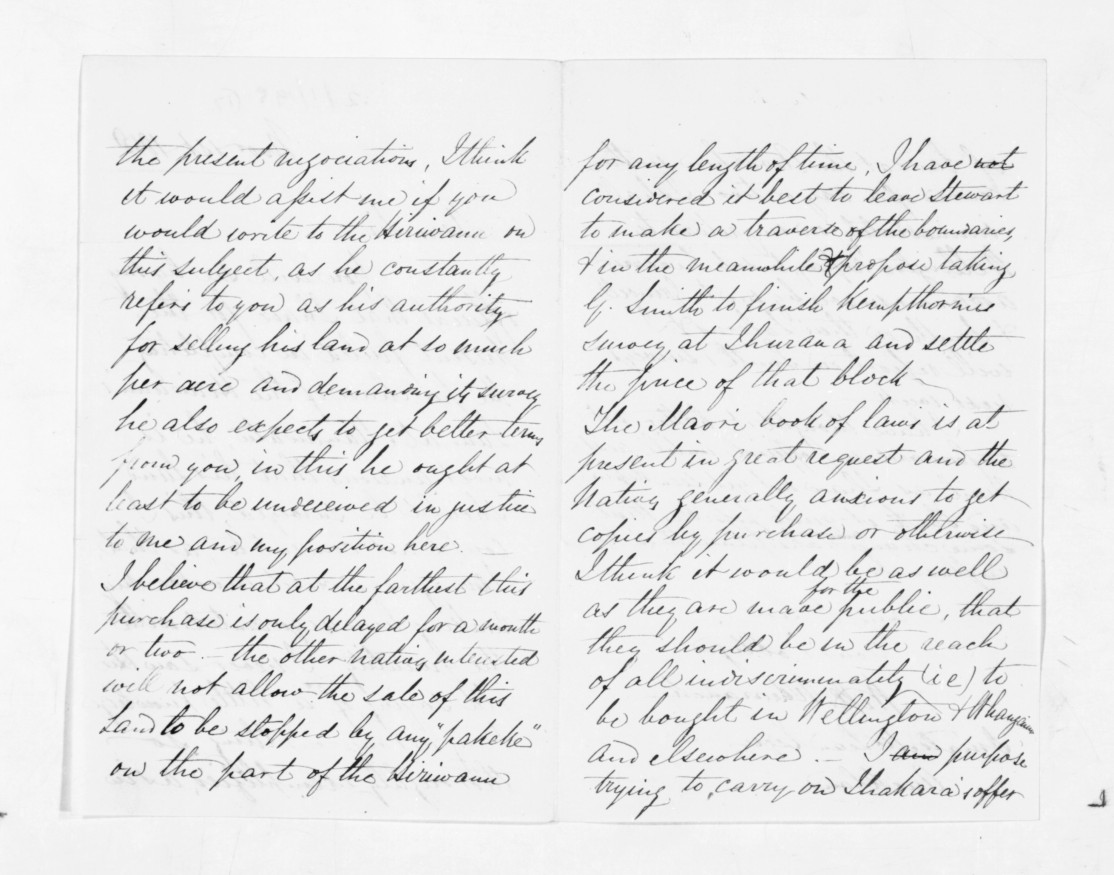 the present negociations, I think
it would assist me if you
would write to the Hiriwanu on
this subject, as he constantly
refers to you as his authority
for selling his land at so much
per acre and demanding its survey
he also expects to get better terms
from you, in this he ought at
least to be undeceived in justice
to me and my position here.
I believe that at the farthest this
purchase is only delayed for a month
or two. – the other natives interested
will not allow the sale of this
Land to be stopped by any "pakeke"
on the part of the Hiriwanu
for any length of time, I have not
considered it best to leave Stewart
to make a traverse of the boundaries,
& in the meanwhile I propose taking
G. Smith to finish Kempthorne's
survey at Ihuraua and settle
the price of that block –
The Maori book of laws is at
present in great request and the
Natives generally anxious to get
copies by purchase or otherwise
I think it would be as well
as they are made for the public, that
they should be in the reach
of all indiscriminately (i e) to
be bought in Wellington & Whanganui
and elsewhere. – I am purpose
trying to carry on Ihakara's offer